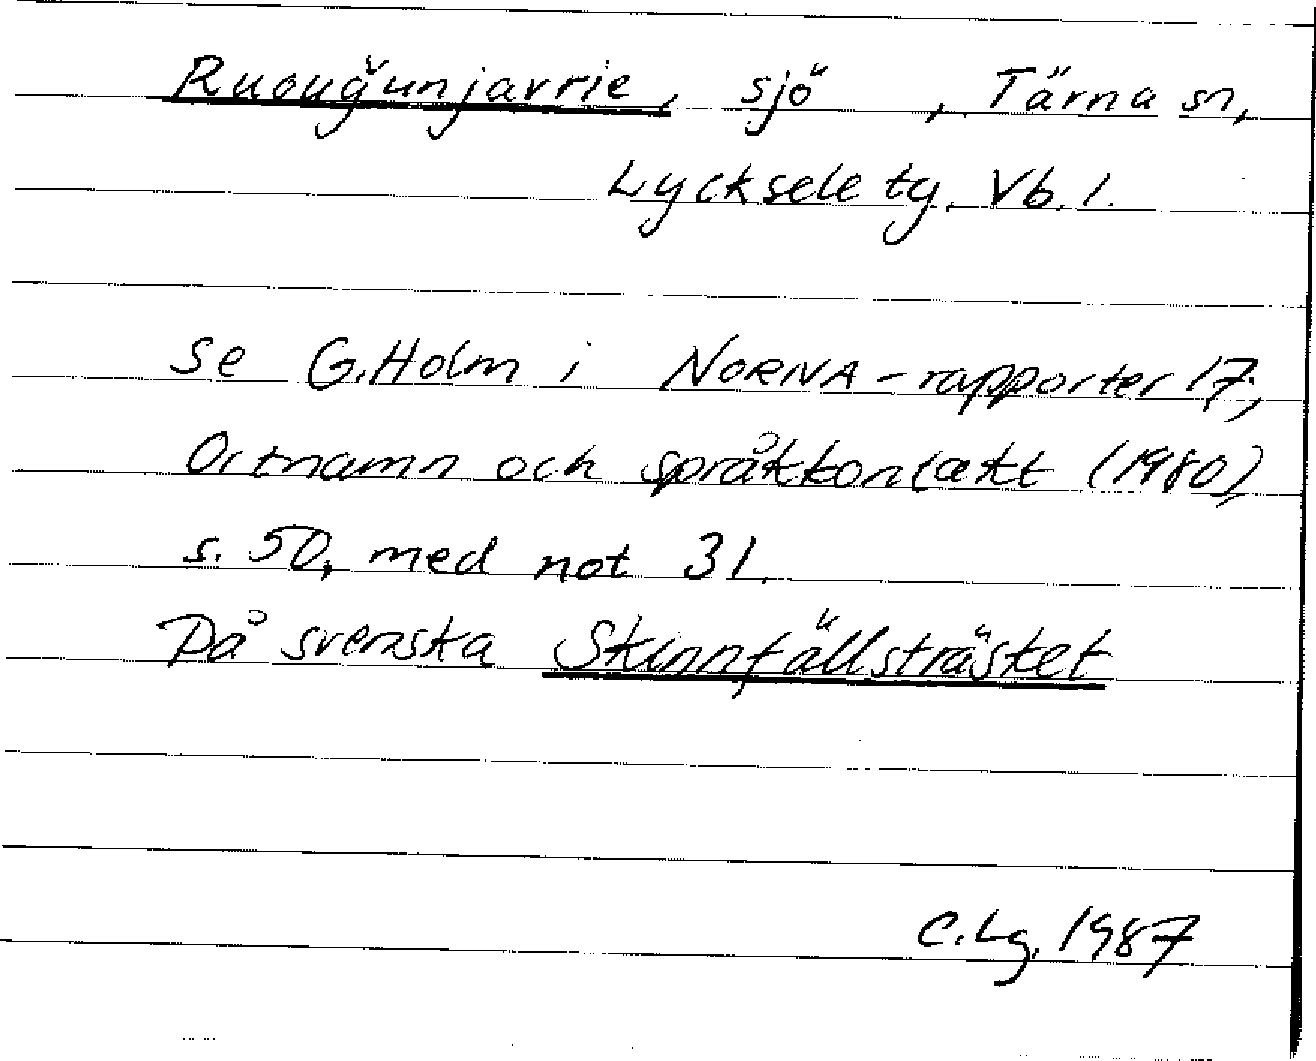 Ruouğunjavrie, sjö, Tärna sn,
Lycksele tg. Vb. l.
Se G. Holm i NORNA-rapporter 17,
Ortnamn och språkkontakt (1980),
s. 50, med not 31.
På svenska Skinnfällsträsket
C. Lg. 1987